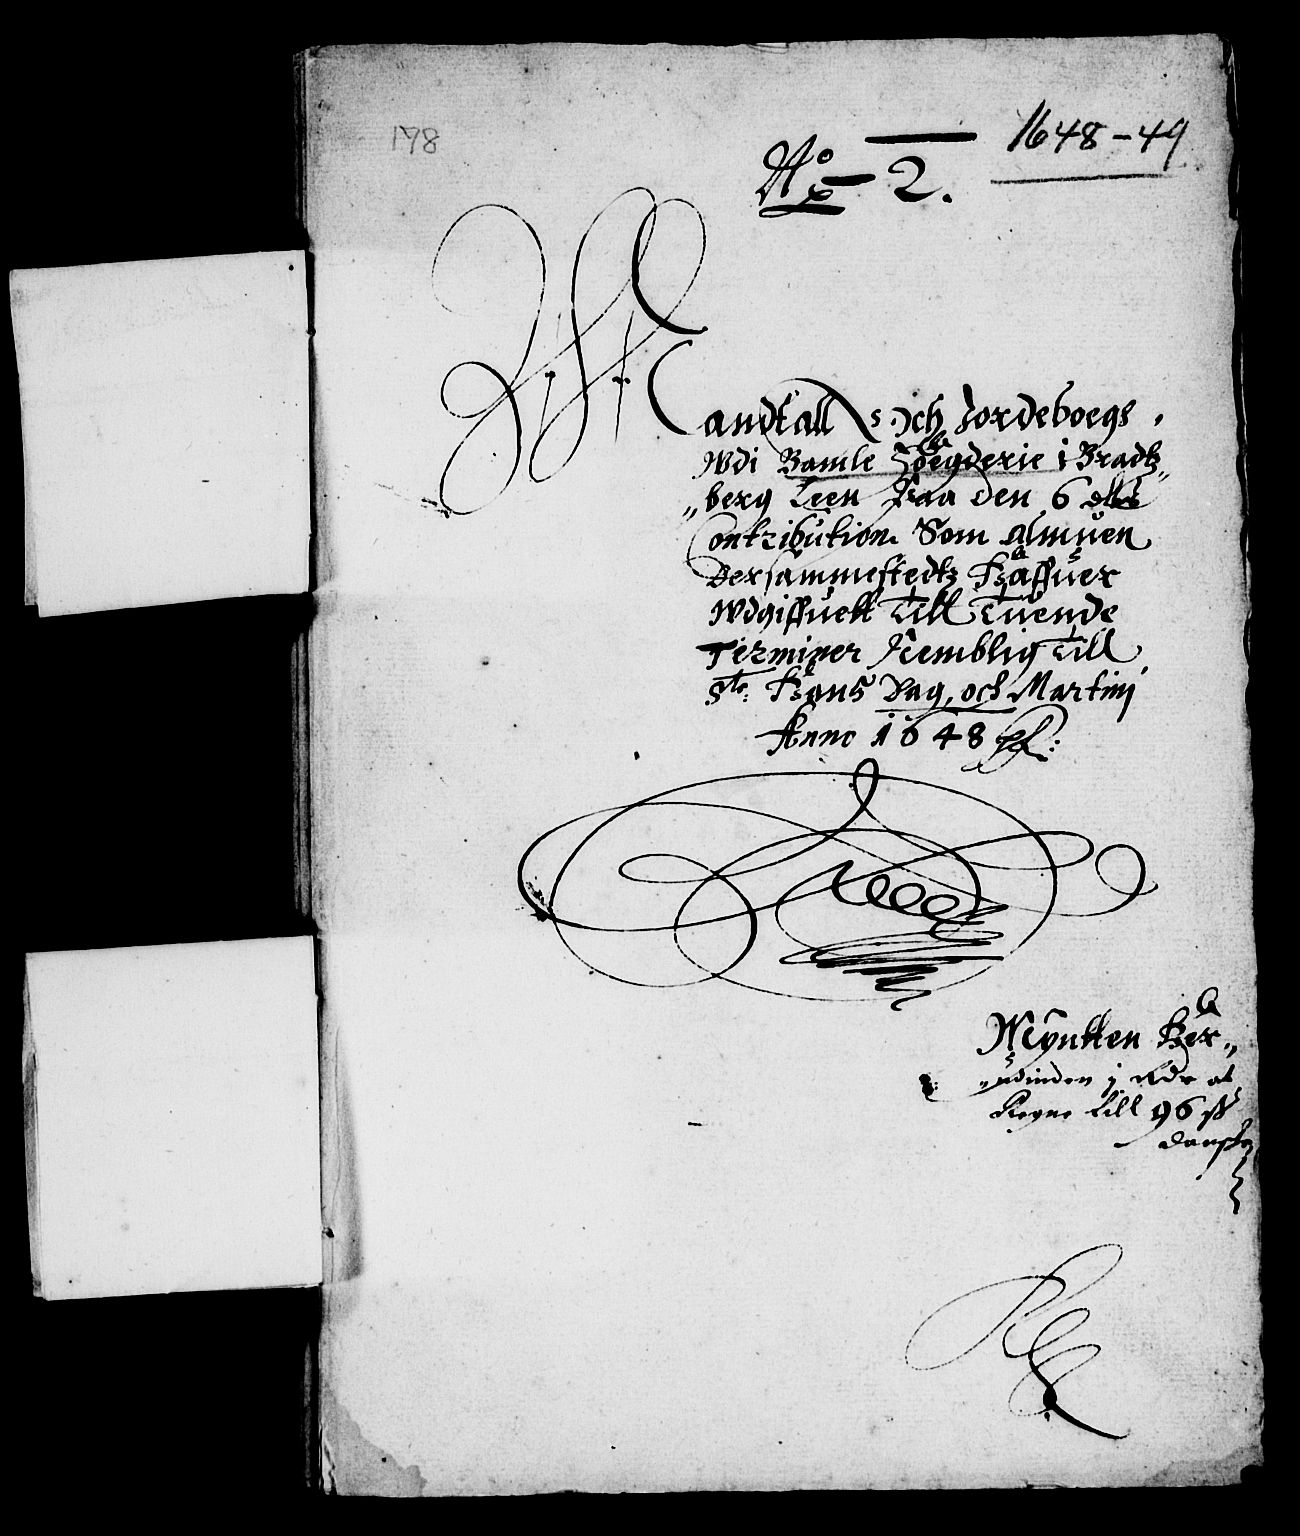 178
1648-49
No 2.
Mandtall och Jordeboegs
Wdi Bamle Foegderie i Bradtz
berg Leen Paa den 6
Contribution Som Almuen
dersammestedtz haffuer
Wdgiffuett Till Tuende
Terminer Nemblig Till
Ste: Hans Dag, och Martinj
Anno 1648
Mÿntten her
udinden j Rdr at
Regne till 96 ß
danske